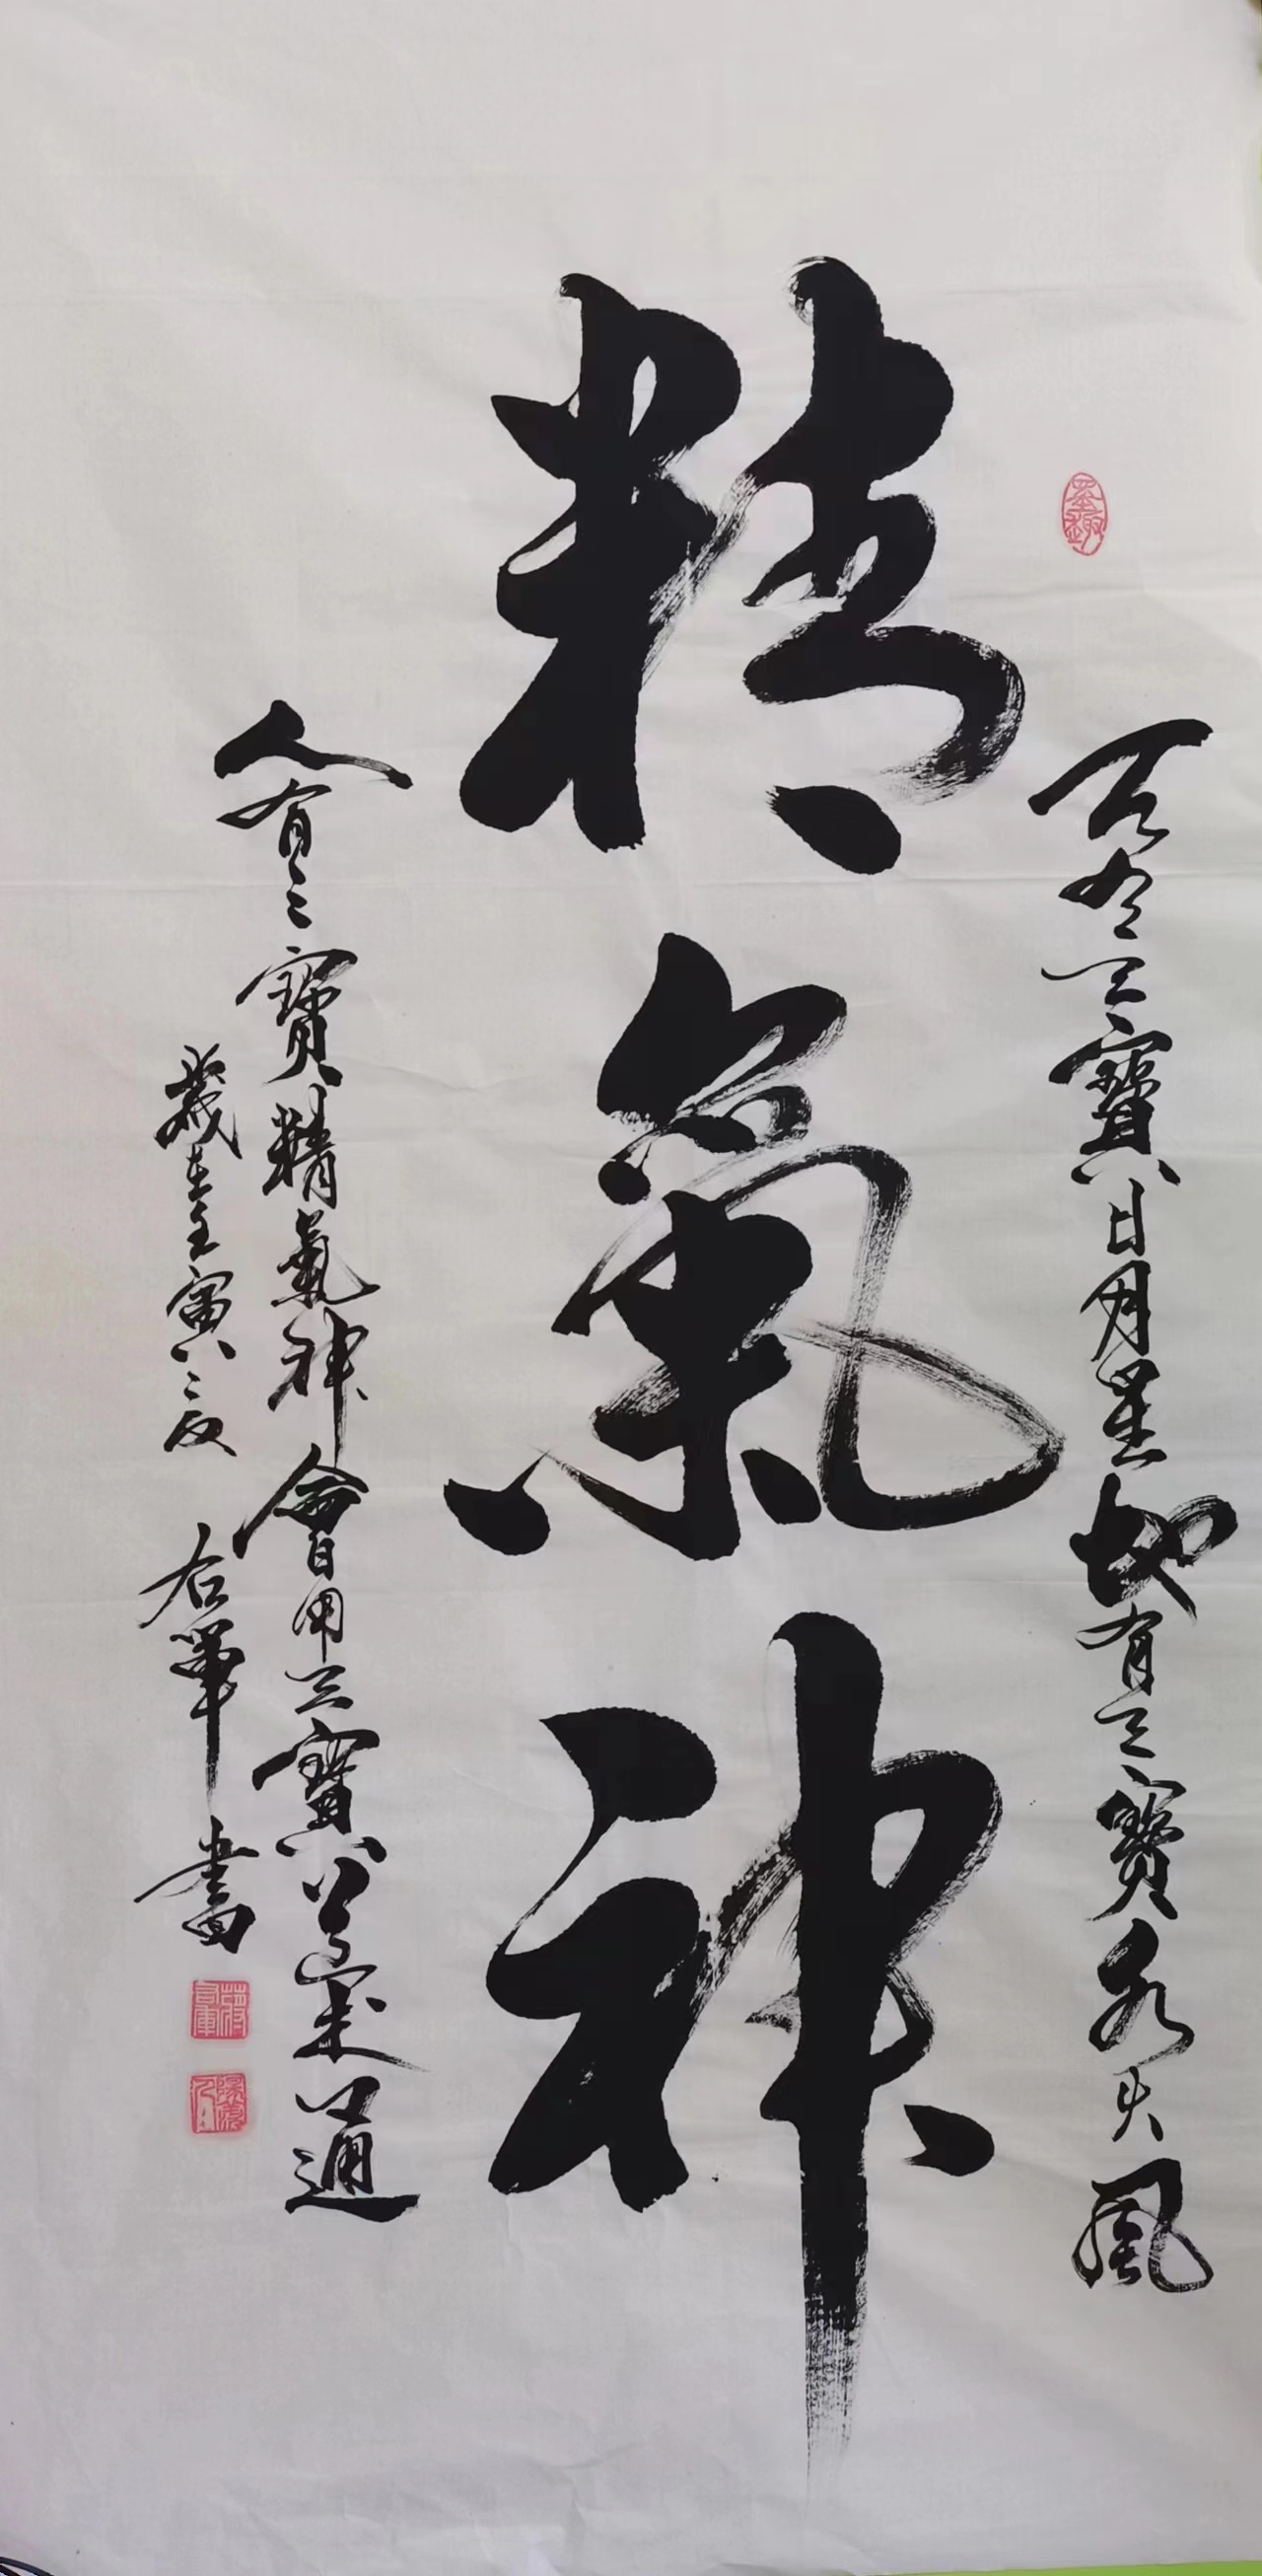 墨趣
天有三寶日月星地有三寶水火風
精氣神
人有三寶精氣神會用三寶通
歲在壬寅之夏 右軍 書